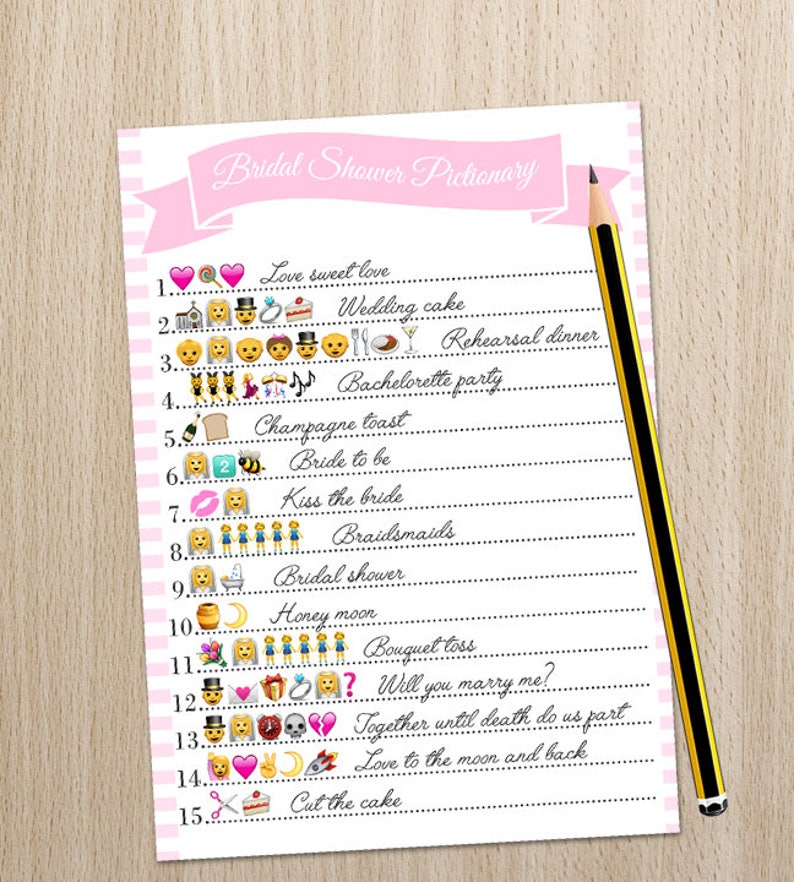 Bridal Shower Pictionary
1. Love sweet love
2. Wedding cake
3. Rehearsal dinner
4. Bachelorette party
5. Champagne toast
6. 2 Bride to be
7. Kiss the bride
8. Braidsmaids
9. Bridal shower
10. Honey moon
11. Bouquet toss
12. ? Will you marry me?
13. Together until death do us part
14. Love to the moon and back
15. Cut the cake